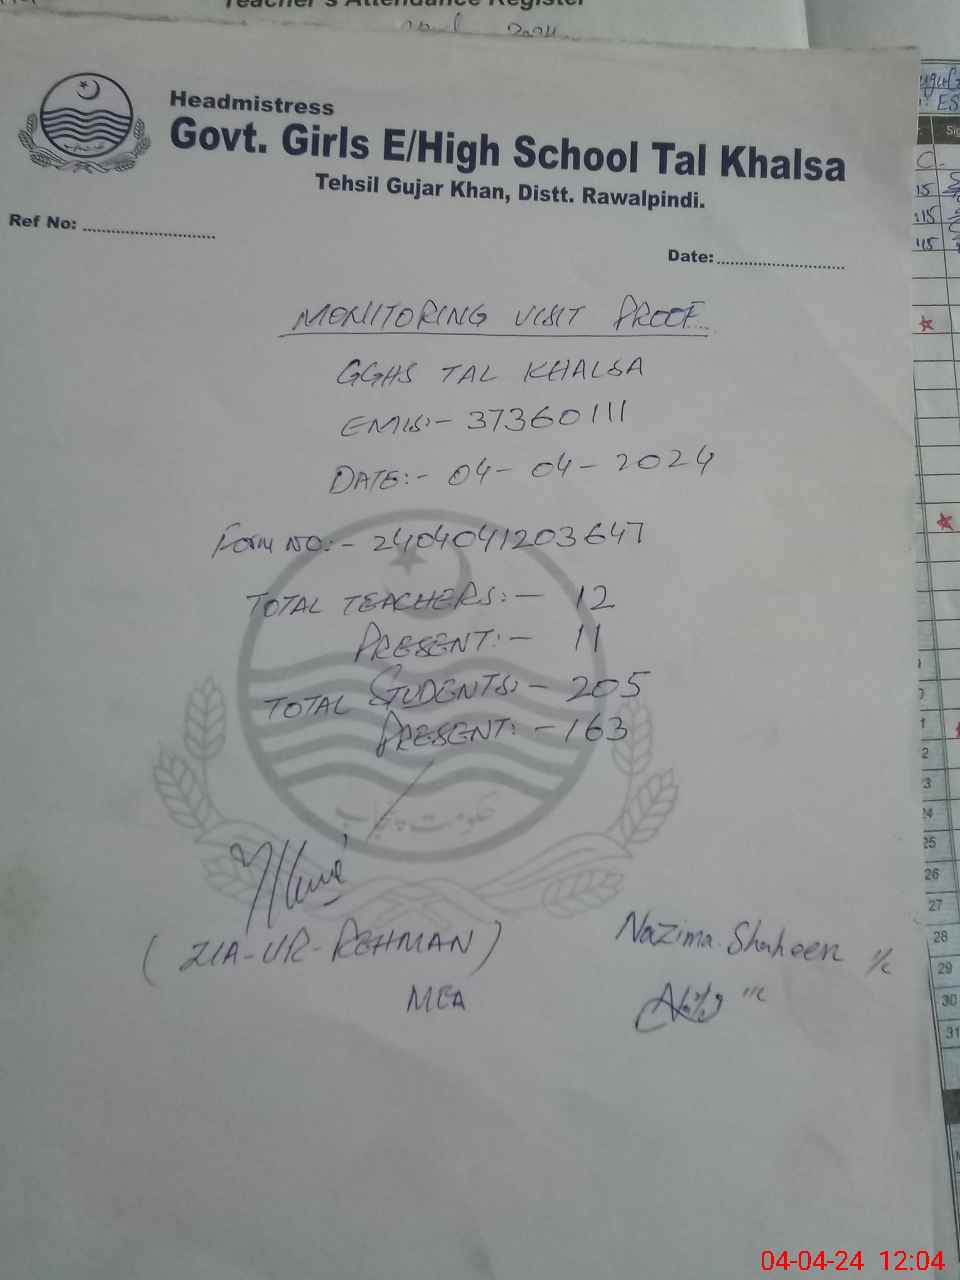 Teacher's Attendance Register
2024
Headmistress
Govt. Girls E/High School Tal Khalsa
Tehsil Gujar Khan, Distt. Rawalpindi.
Ref No:
Date:
MONITORING VISIT PROOF
GGHS TAL KHALSA
EMIS:- 37360111
DATE:- 04-04-2024
Form NO:- 2404041203647
TOTAL TEACHERS:- 12
PRESENT:- 11
TOTAL STUDENTS:- 205
PRESENT:- 163
حکومت پنجاب
(ZIA-UR-REHMAN)
MEA
Nazima Shaheen I/C
I/C
15
:15
:15
1
2
3
24
25
26
27
28
29
30
31
04-04-24 12:04